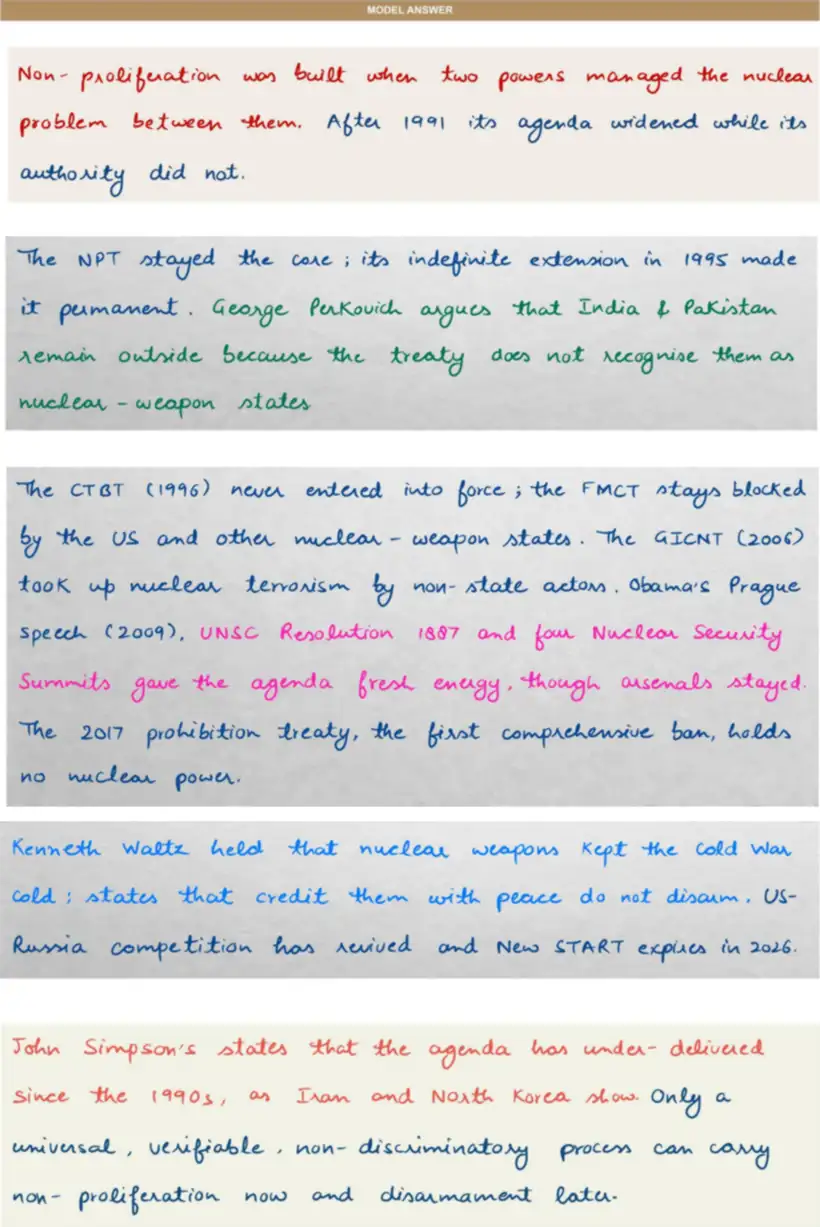 MODEL ANSWER
Non- proliferation was built when two powers managed the nuclear
problem between them. After 1991 its agenda widened while its
authority did not.
The NPT stayed the core ; its indefinite extension in 1995 made
it permanent. George Perkovich argues that India & Pakistan
remain outside because the treaty does not recognise them as
nuclear - weapon states
The CTBT (1996) never entered into force ; the FMCT stays blocked
by the US and other nuclear - weapon states. The GICNT (2006)
took up nuclear terrorism by non- state actors. Obama's Prague
speech (2009), UNSC Resolution 1887 and four Nuclear Security
Summits gave the agenda fresh energy, though arsenals stayed.
The 2017 prohibition treaty, the first comprehensive ban, holds
no nuclear power.
Kenneth Waltz held that nuclear weapons kept the Cold War
cold ; states that credit them with peace do not disarm. US-
Russia competition has revived and New START expires in 2026.
John Simpson's states that the agenda has under- delivered
since the 1990s, as Iran and North Korea show. Only a
universal, verifiable, non- discriminatory process can carry
non- proliferation now and disarmament later.